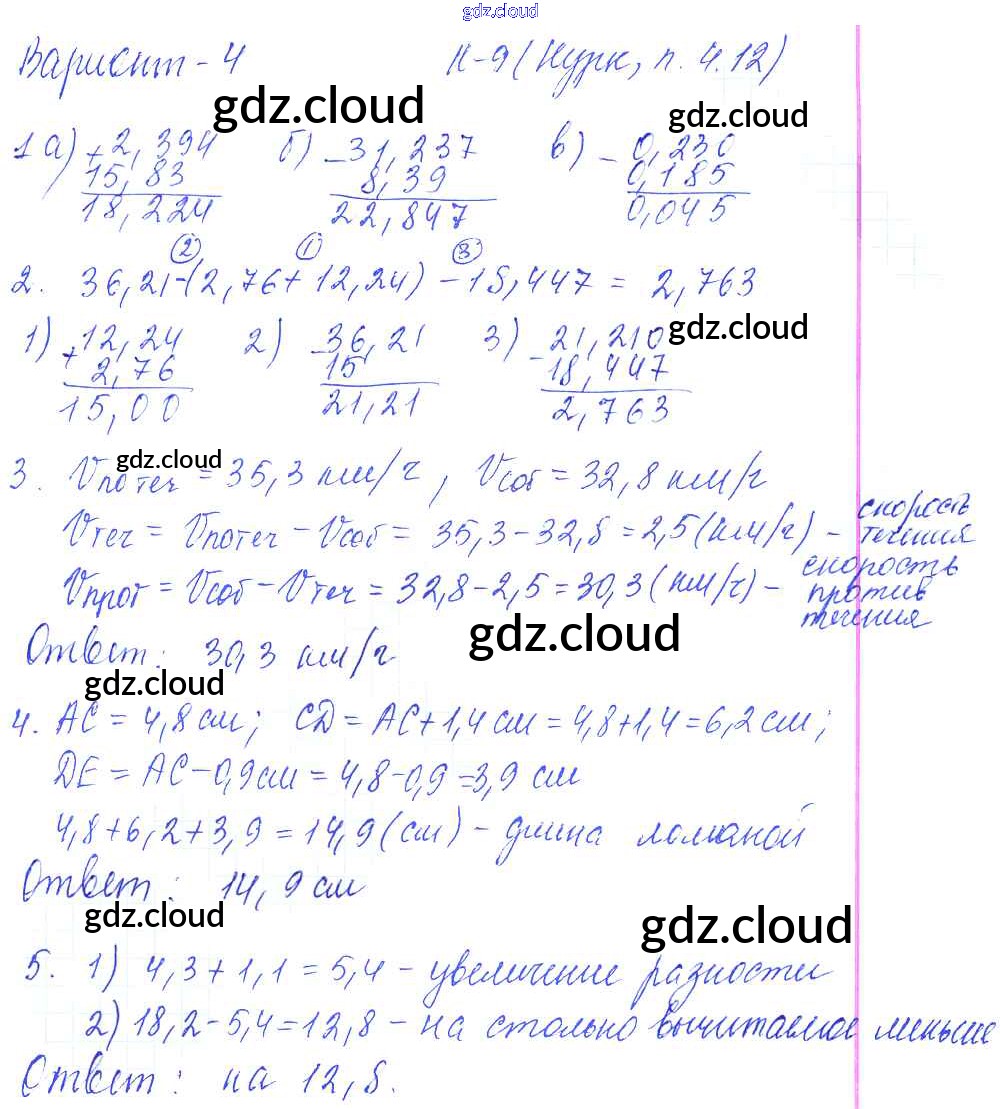 gdz.cloud
Вариант - 4 К-9 (Нурк, п. 4.12)
gdz.cloud
gdz.cloud
1 а) + 2,394 б) - 31,237 в) - 0,230
15,83 8,39 0,185
18,224 22,847 0,045
② ① ③
2. 36,21-(2,76+12,24) - 18,447 = 2,763
1) 12,24 2) 36,21 3) 21,210
+ 2,76 - 15 - 18,447
15,00 21,21 2,763
gdz.cloud
gdz.cloud
gdz.cloud
3. Vпо теч = 35,3 км/ч, Vсоб = 32,8 км/ч
Vтеч = Vпотеч - Vсоб = 35,3-32,8 = 2,5 (км/ч) - скорость течения
Vпрот = Vсоб - Vтеч = 32,8-2,5 = 30,3 (км/ч) - скорость против течения
gdz.cloud
Ответ: 30,3 км/ч
gdz.cloud
4. AC = 4,8 см; CD = AC+1,4 см = 4,8+1,4 = 6,2 см;
DE = AC-0,9 см = 4,8-0,9 = 3,9 см
4,8+6,2+3,9 = 14,9 (см) - длина ломаной
Ответ: 14,9 см
gdz.cloud
gdz.cloud
5. 1) 4,3+1,1 = 5,4 - увеличение разности
2) 18,2-5,4 = 12,8 - на столько вычитаемое меньше
Ответ: на 12,8.